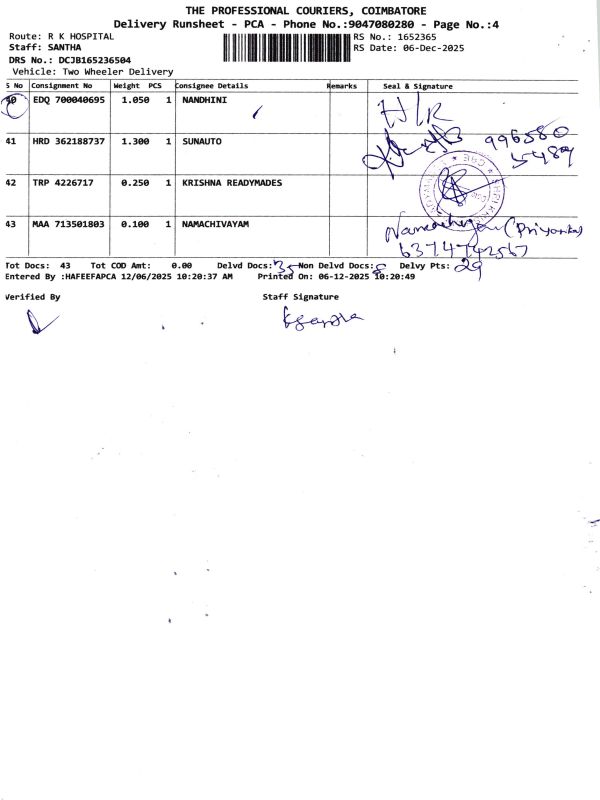 THE PROFESSIONAL COURIERS, COIMBATORE
Delivery Runsheet - PCA - Phone No.:9047080280 - Page No.:4
Route: R K HOSPITAL RS No.: 1652365
Staff: SANTHA RS Date: 06-Dec-2025
DRS No.: DCJB165236504
Vehicle: Two Wheeler Delivery
S No Consignment No Weight PCS Consignee Details Remarks Seal & Signature
40 EDQ 700040695 1.050 1 NANDHINI H/R
41 HRD 362188737 1.300 1 SUNAUTO 996580
5489
42 TRP 4226717 0.250 1 KRISHNA READYMADES
43 MAA 713501803 0.100 1 NAMACHIVAYAM (Priyanka)
6374742567
Tot Docs: 43 Tot COD Amt: 0.00 Delvd Docs: 35 Non Delvd Docs: 8 Delvy Pts: 29
Entered By :HAFEEFAPCA 12/06/2025 10:20:37 AM Printed On: 06-12-2025 10:20:49
Verified By Staff Signature